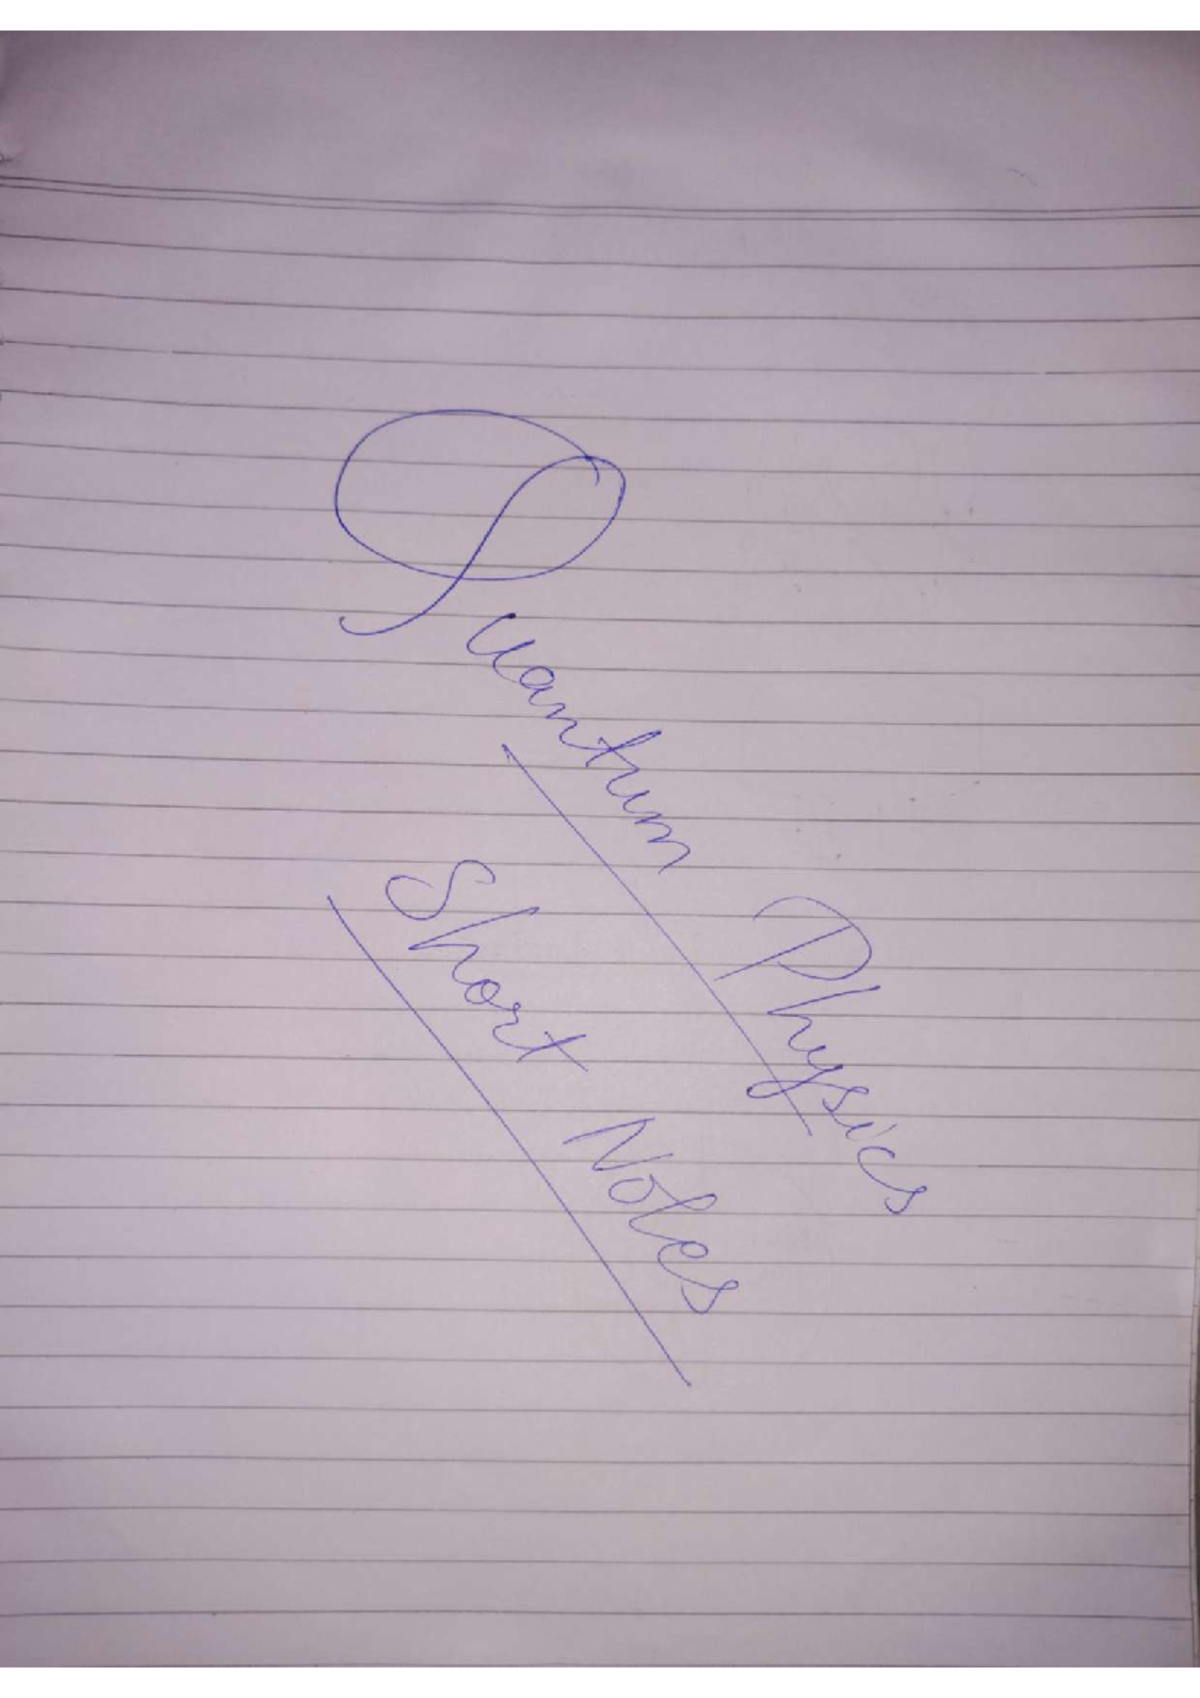 Quantum Physics
Short Notes